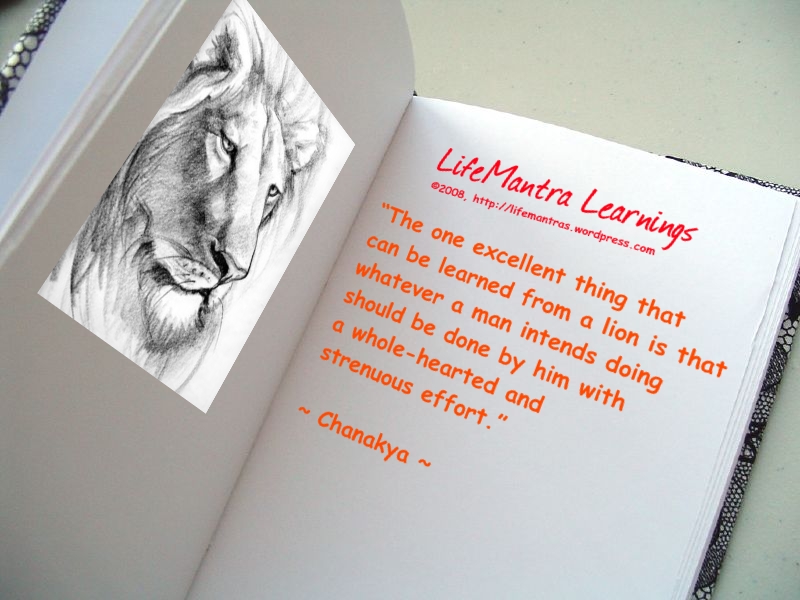 LifeMantra Learnings
©2008, http://lifemantras.wordpress.com
“The one excellent thing that
can be learned from a lion is that
whatever a man intends doing
should be done by him with
a whole-hearted and
strenuous effort.”
~ Chanakya ~